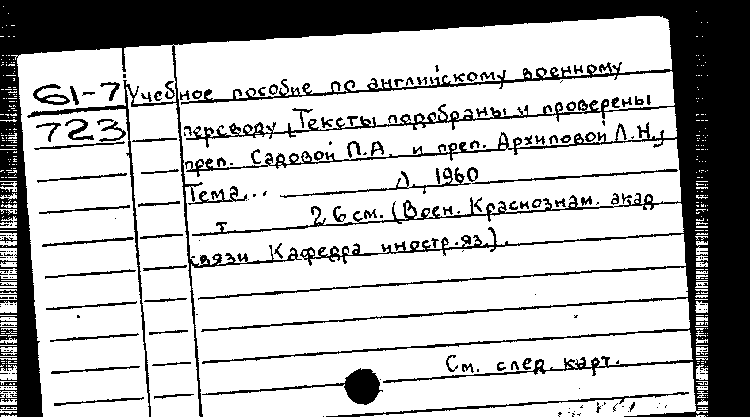 61-7
723
Учебное пособие по английскому военному
переводу [Тексты подобраны и проверены
преп. Садовой П.А. и преп. Архиповой Л.Н.]
Тема... Л., 1960
т 26 см. (Воен. Краснознам. акад
связи Кафедра иностр. яз.).
См. след. карт.